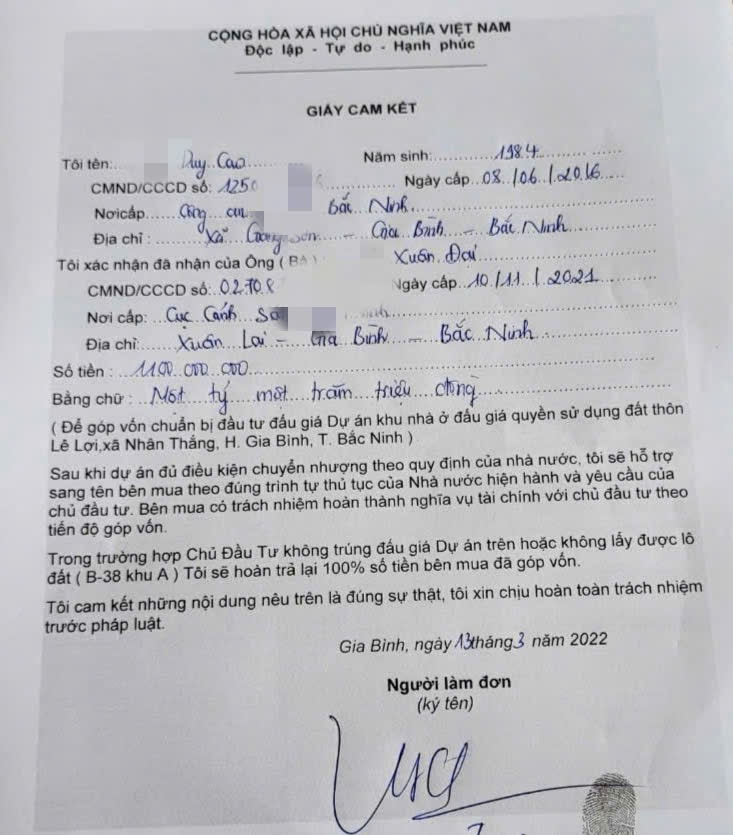 CỘNG HÒA XÃ HỘI CHỦ NGHĨA VIỆT NAM
Độc lập - Tự do - Hạnh phúc
GIẤY CAM KẾT
Tôi tên: Duy Cao Năm sinh: 1984
CMND/CCCD số: 1250 Ngày cấp 08/06/2016
Nơi cấp Công an Bắc Ninh
Địa chỉ: Xã - Gia Bình - Bắc Ninh
Tôi xác nhận đã nhận của Ông ( BÀ ) Xuân Đại
CMND/CCCD số: 02708 Ngày cấp 10/11/2021
Nơi cấp: Cục Cảnh
Địa chỉ: Xuân Lai - Gia Bình - Bắc Ninh
Số tiền : 1100.000.000
Bằng chữ: Một tỷ một trăm triệu đồng
( Để góp vốn chuẩn bị đầu tư đấu giá Dự án khu nhà ở đấu giá quyền sử dụng đất thôn
Lê Lợi,xã Nhân Thắng, H. Gia Bình, T. Bắc Ninh )
Sau khi dự án đủ điều kiện chuyển nhượng theo quy định của nhà nước, tôi sẽ hỗ trợ
sang tên bên mua theo đúng trình tự thủ tục của Nhà nước hiện hành và yêu cầu của
chủ đầu tư. Bên mua có trách nhiệm hoàn thành nghĩa vụ tài chính với chủ đầu tư theo
tiến độ góp vốn.
Trong trường hợp Chủ Đầu Tư không trúng đấu giá Dự án trên hoặc không lấy được lô
đất ( B-38 khu A ) Tôi sẽ hoàn trả lại 100% số tiền bên mua đã góp vốn.
Tôi cam kết những nội dung nêu trên là đúng sự thật, tôi xin chịu hoàn toàn trách nhiệm
trước pháp luật.
Gia Bình, ngày 13 tháng 3 năm 2022
Người làm đơn
(ký tên)